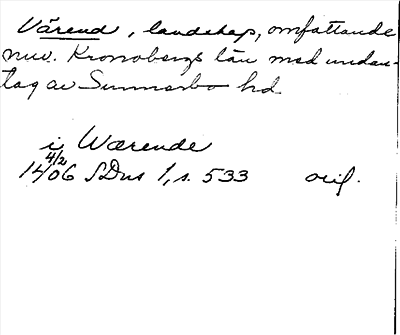 Värend, landskap, omfattande
nuv. Kronobergs län med undan-
tag av Sunnerbo hd
i Wærende
4/2
1406 SDns 1, s. 533 orig.